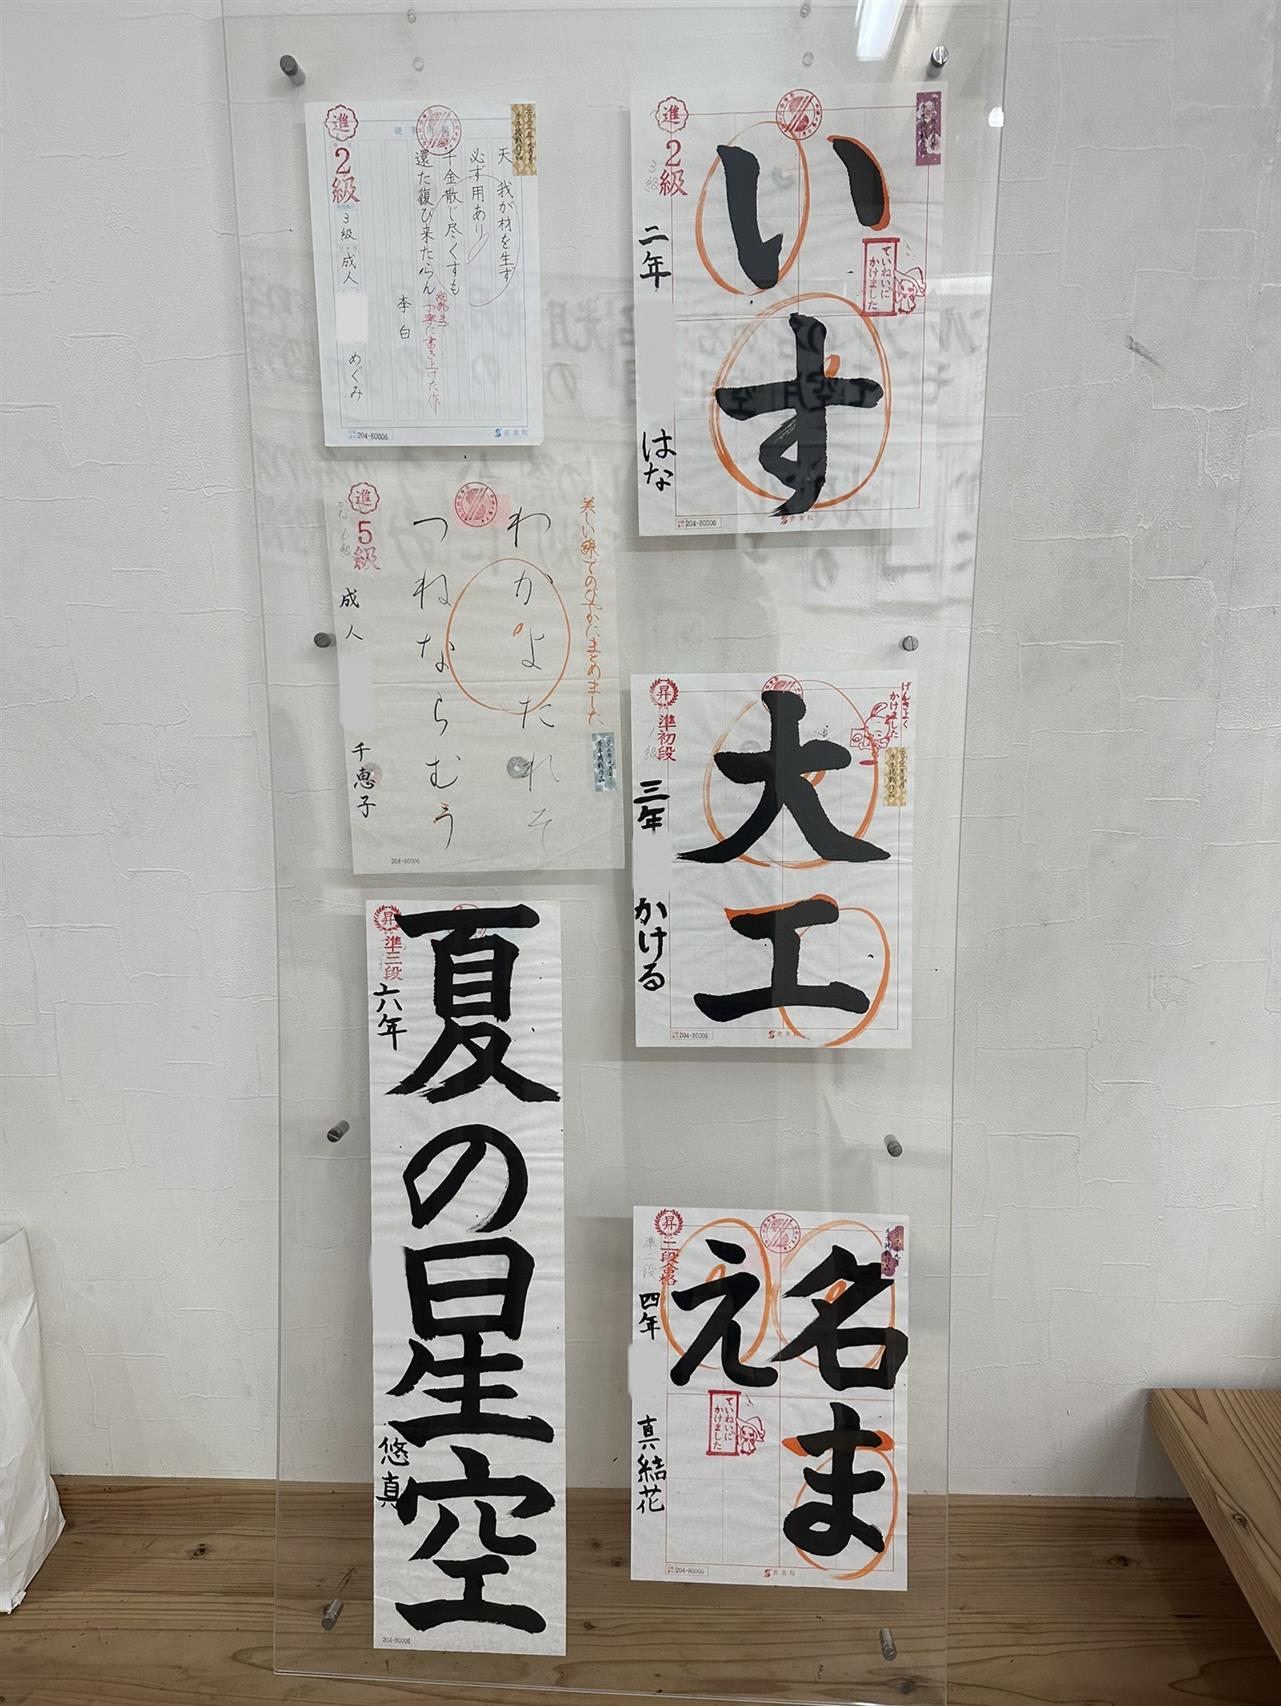 進
2級
3級 成人
めぐみ
硬筆
天 我が材を生ず
必ず用あり
千金散じ尽くすも
還た復び来たらん
李白
細部まで
丁寧に書き上げた作
204-80006
書美院
進
2級
3級
二年
はな
いす
ていねいに
かけました
204-80006
書美院
進
5級
成人
千恵子
美しい線でのびやかにまとめました
わがよたれそ
つねならむう
204-80006
昇
準初段
1級
三年
かける
大工
げんきよく
かけました
204-80006
書美院
昇
準三段
六年
悠真
夏の星空
204-80006
昇
二段合格
準二段
四年
真結花
名ま
え
ていねいに
かけました
204-80006
書美院